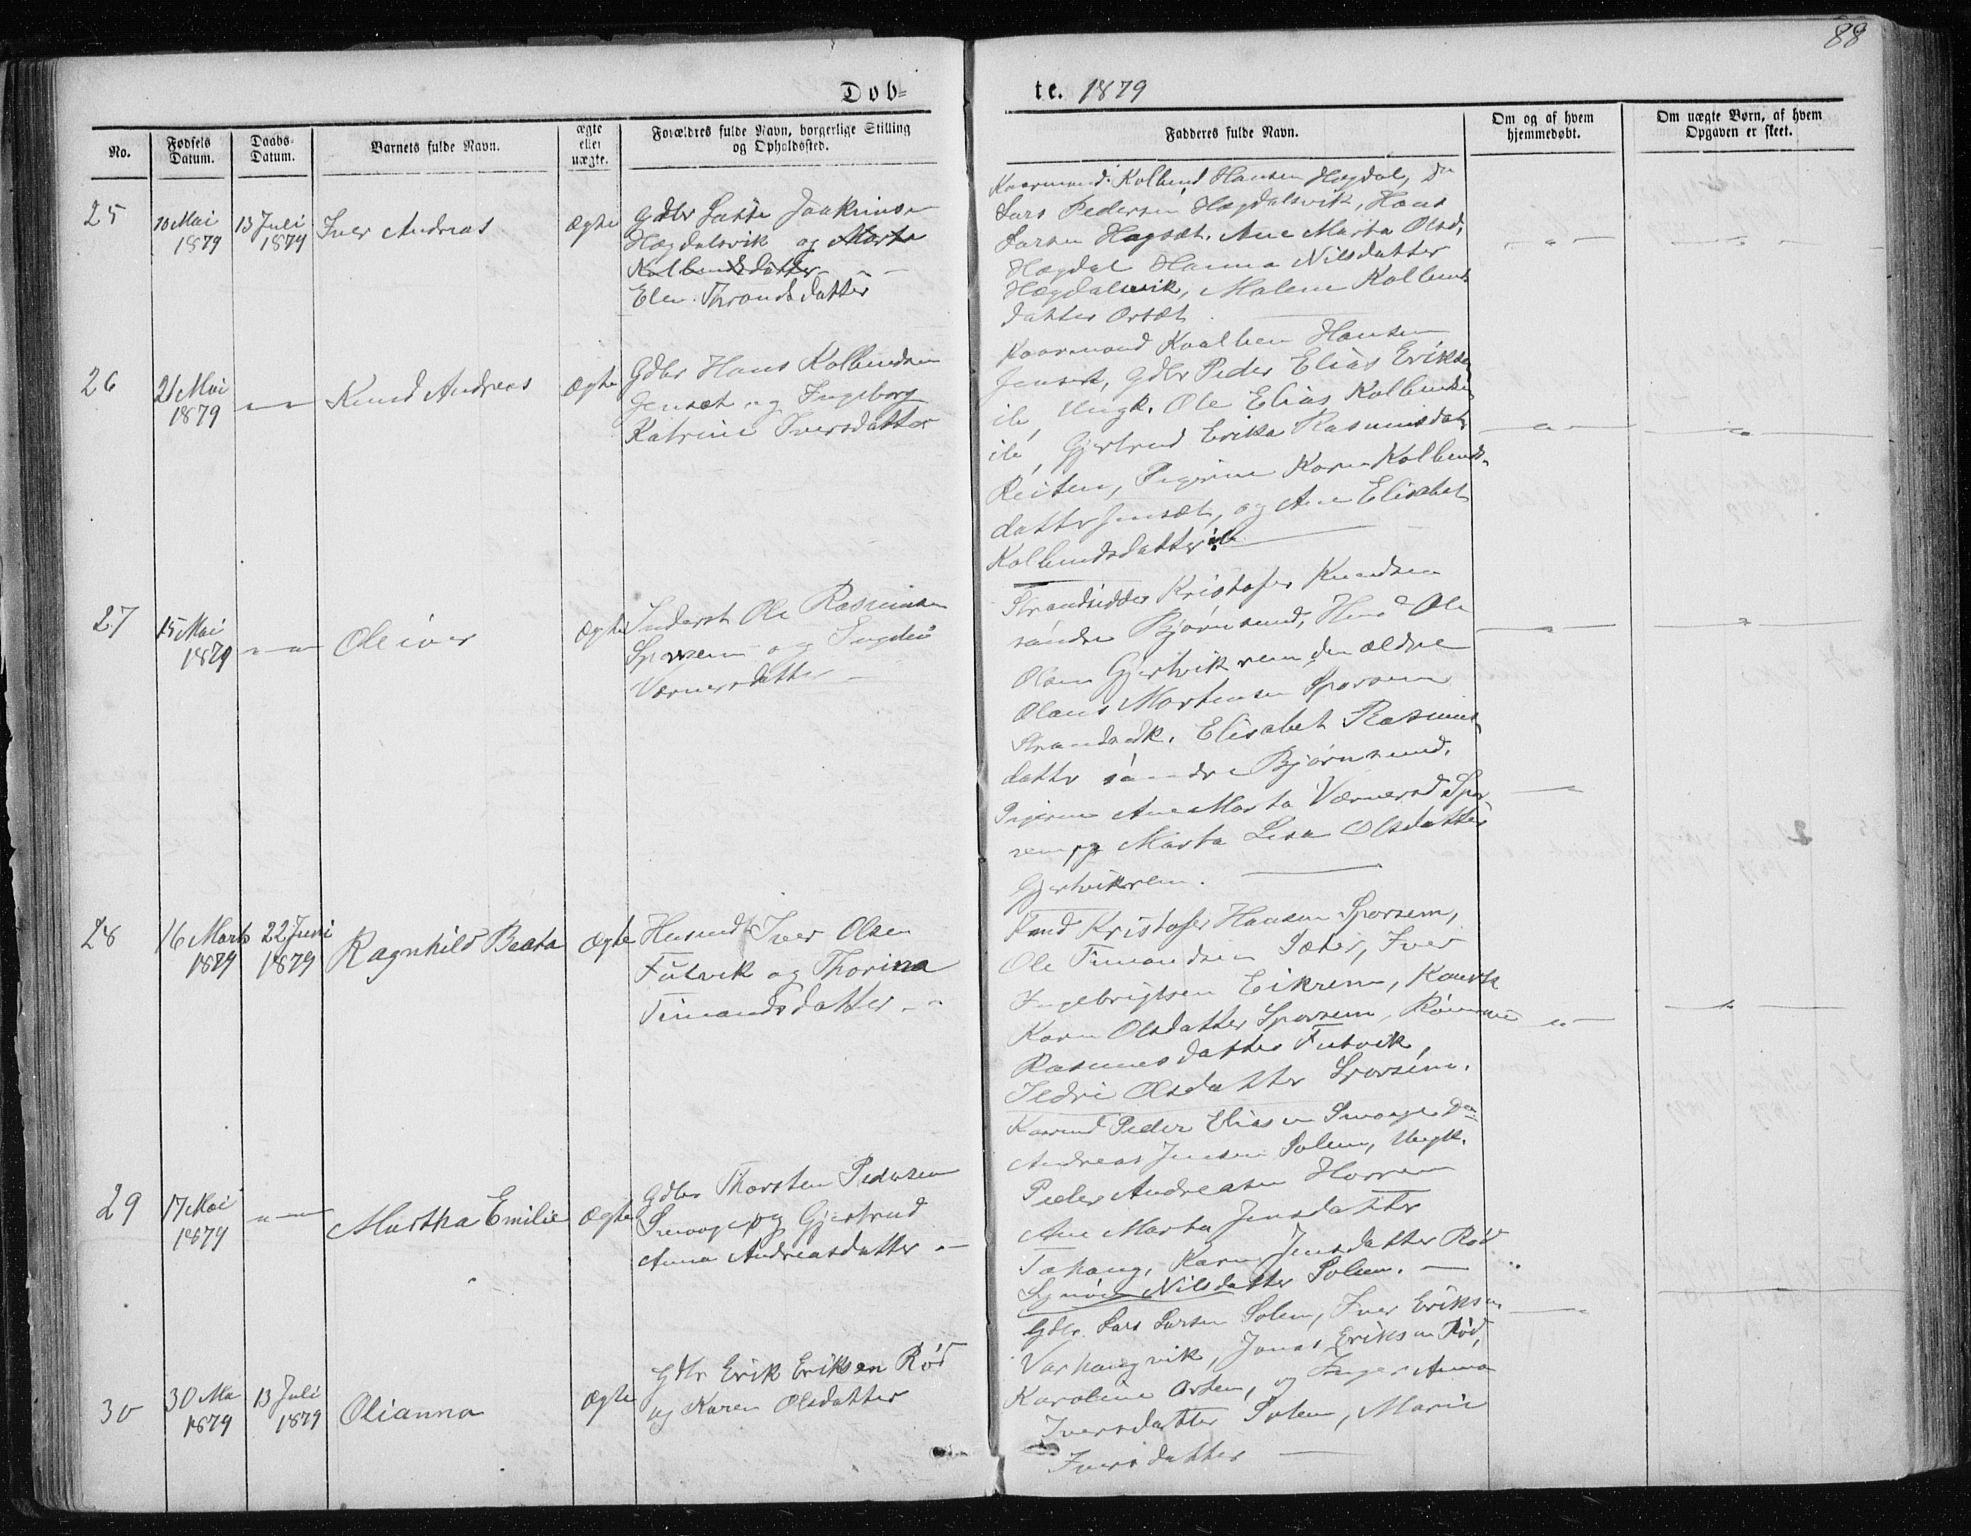 88
Døbte. 1879
No.
Fødsels Datum.
Daabs-Datum.
Barnets fulde Navn.
ægte eller uægte.
Forældres fulde Navn, borgerlige Stilling og Opholdssted.
Fadderes fulde Navn.
Om og af hvem hjemmedøbt.
Om uægte Børn, af hvem Opgaven er skeet.
25
10 Mai 1879
13 Juli 1879
Iver Andreas
Ægte
Gdbr Jaakimsen
Hægdalsvik og Marta
Kolbendsdatter
Elen Throndsdatter
Kaarmand Kolbend Hansen Hægdal, Do
Lars Pedersen Hægdalsvik, Hans
Larsen Hagsæt, Ane Marta Olsd.
Hægdal Hanna Nilsdatter
Hægdalsvik, Malene Kolbends
datter Orsæt
26
21 Mai 1879
Knud Andreas
Ægte
Gdbr Hans Kolbendsen
Jensæt og Ingeborg
Katrine Iversdatter
Kaarmand Kaalben Hansen
Jensæt, Gdbr Peder Elias Eriksen
ib, Ungk. Ole Elias Kolbends
ib, Gjertrud Erika Rasmusdat
Reiten, Pigerne Karen Kolbends-
datter Jensæt, og Ane Elisabet
Kolbendsdatter ib
27
15 Mai 1879
Oleiver
Ægte
Inderst Ole Rasmusen
Sporsem og
Værnersdatter
Strandsidder Kristofer Knudsen
søndre Bjørnsund, Husmd Ole
Olsen Gjertvikrem den ældre
Olaus Mortensen Sporsem
Elisabet Rasmus
datter søndre Bjørnsund.
Pigerne Ane Marta Værnersd Spor
sem og Marta Lisa Olsdatter
Gjertvikrem.
28
16 Marts 1879
22 Juni 1879
Ragnhild Beata
Ægte
Husmd Iver Olsen
Futvik og Thorina
Timandsdatter
Kristofer Hansen Sporsem,
Ole Timandsen Sæter, Iver
Ingebrigtsen Eikrem,
Karen Olsdatter Sporsem,
Rasmusdatter Futvik,
Olsdatter Sporsem.
29
17 Mai 1879
Martha Emilie
Ægte
Gdbr Thorsten Pedersen
Smaage og Gjertrud
Anna Andreasdatter
Peder Eliasen Smaage Do
Andreas Jensen Solem, Ungk.
Peder Andreasen Horrem
Ane Marta Jensdatter
Karen Jensdatter Rød
Synøve Nilsdatter Solem.
30
30 Mai 1879
13 Juli 1879
Olianna
Ægte
Gdbr Erik Eriksen Rød
og Karen Olsdatter
Gdbr. Lars Larsen Solem, Iver Eriksen
Varhaugvik, Jonas Eriksen Rød,
Karoline og Inger Anna
Iversdatter Solem, Marie
Iversdatter